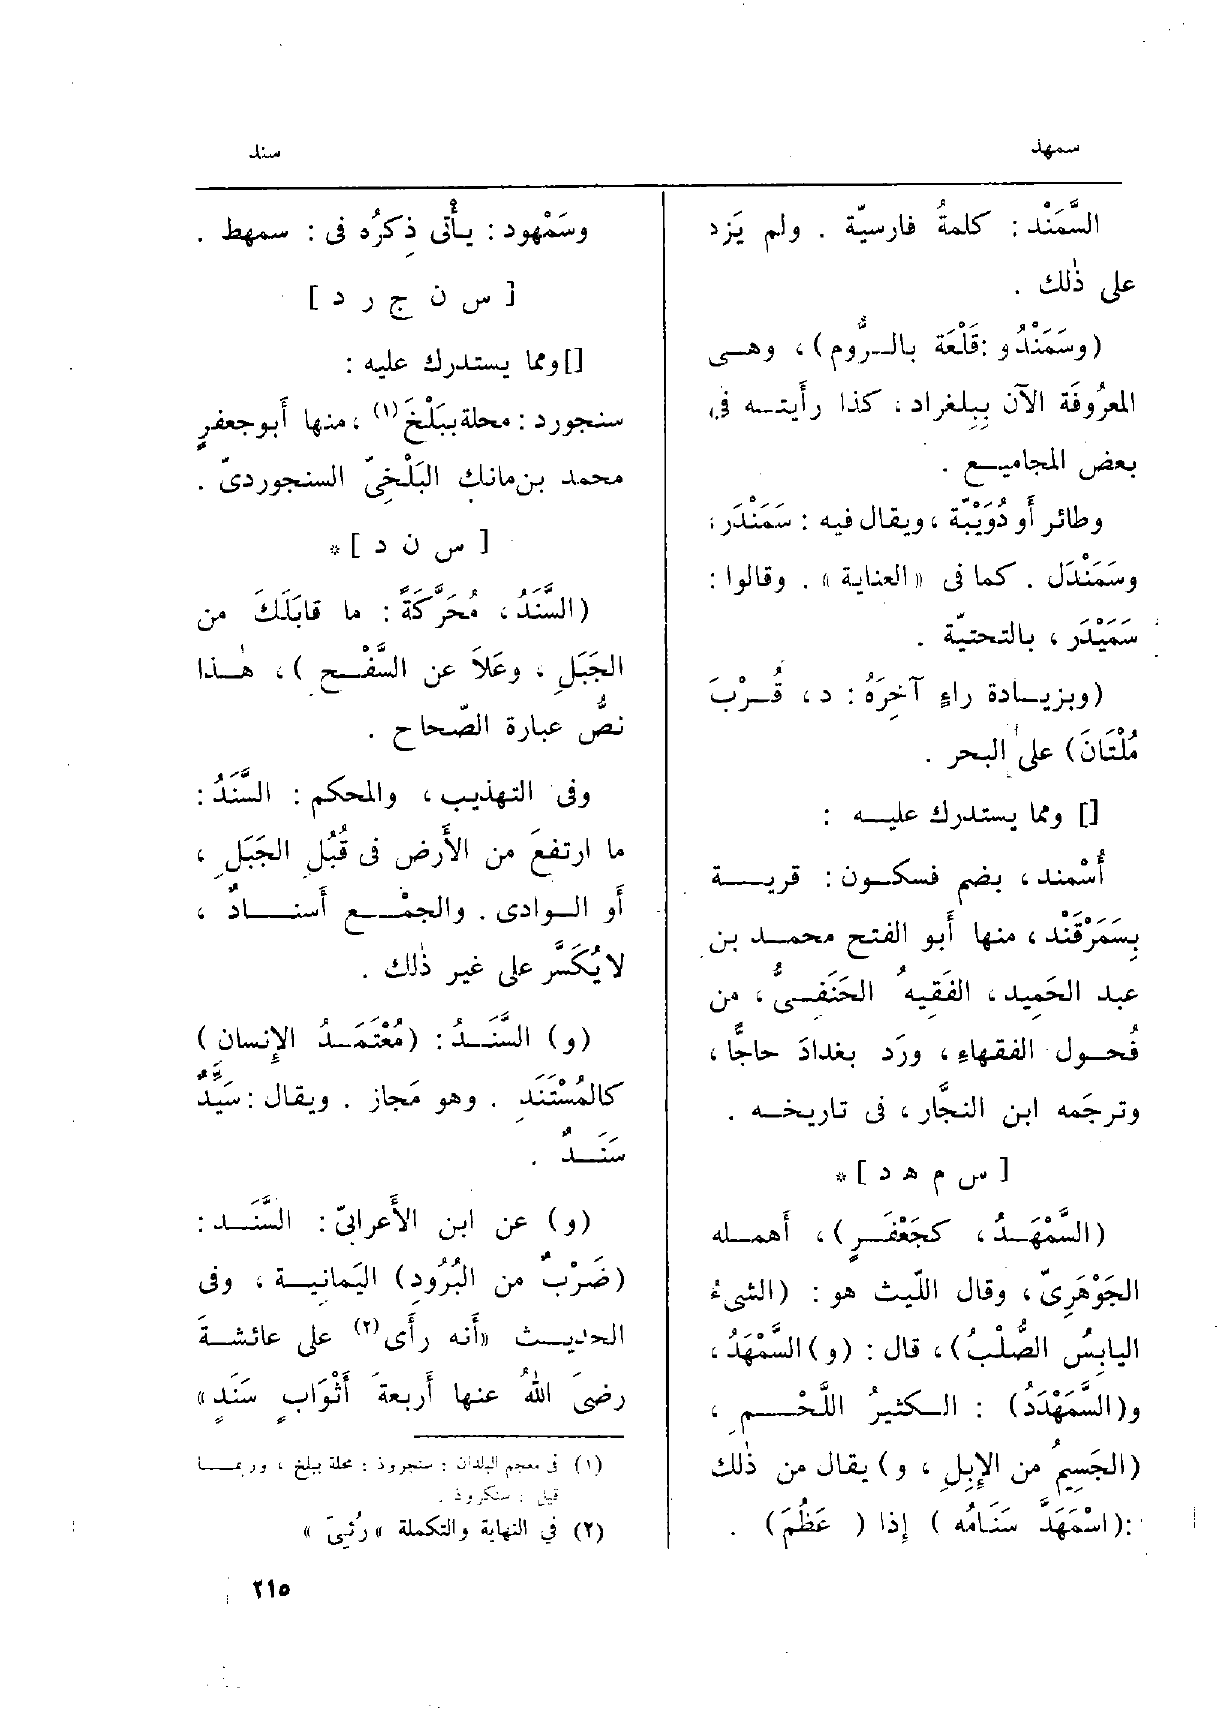 سمهد
سند
السَّمَنْد: كلمةُ فارسيّة . ولم يَزد
على ذٰلك .
(وسَمَنْدُو :قَلْعَة بالـرُّوم)، وهـى
المعرُوفَة الآن بِبِلغراد، كذا رأيتـه فى
بعض المجاميـع .
وطائر أو دُوَيْبّة ، ويقال فيه : سَمَنْدَر،
وسَمَنْدَل . كما فى «العناية» . وقالوا :
سَمَيْدَر ، بالتحتيّة .
(وبزيـادة راءٍ آخِرَهُ : د، قُـرْبَ
مُلْتَانَ) على البحر .
[] ومما يستدرك عليـه :
أُسْمند، بضم فسكـون : قريـة
بِسَمَرْقَنْد، منها أبو الفتح محمـد بن
عبد الحَمِيد، الفَقِيهُ الحَنَفِىُّ، من
فُحـول الفقهاءِ، ورَد بغدادَ حاجًّا،
وترجَمه ابن النجَّار، فى تاريخـه .
[ س م ه د ] *
(السَّمْهَـدُ، كجَعْفَـرٍ)، أَهمـله
الجَوْهَرِىّ، وقال اللّيث هو : (الشىءُ
اليابِسُ الصُّلْبُ)، قال : (و)السَّمْهَدُ،
و(السَّمَهْدَدُ) : الـكثيرُ اللَّحْـمِ ،
(الجَسِيمُ من الإبِلِ ، و) يقال من ذٰلك
:(اسْمَهَدَّ سَنَامُه ) إذا ( عَظُمَ) .
وسَمْهود : يـأْتى ذِكرُه فى : سمهط .
[ س ن ج ر د ]
[]ومما يستدرك عليه :
سنجورد : محلة بِبَلْخَ(١) ،منها أبوجعفرٍ
محمد بن مانك البَلْخِىّ السنجوردىّ .
[ س ن د ] *
(السَّنَدُ، مُحَرَّكَةً : ما قابَلَكَ من
الجَبَلِ ، وعَلاَ عن السَّفْـح )، هٰـذا
نصُّ عبارة الصّحاح .
وفى التهذيب، والمحكم : السَّنَدُ :
ما ارتفعَ من الأَرض فى قُبُلِ الجَبَلِ ،
أو الـوادى . والجمْـع أَسنـادٌ ،
لا يُكَسَّر على غير ذٰلك .
(و) السَّنَـدُ : (مُعْتَمَـدُ الإِنسان )
كالمُسْتَنَدِ . وهو مَجاز . ويقال : سَيِّدٌ
سَنَـدٌ .
(و) عن ابن الأَعرابىّ : السَّنَـد :
(ضَرْبٌ من البُرُودِ) اليَمانيـة ، وفى
الحديـث «أنه رأَى(٢) على عائشـةَ
رضىَ اللهُ عنها أربعةَ أثْوَابٍ سَنَدٍ»
(١) فى معجم البلدان : سنجروذ : محلة ببلخ ، وربمـا
قيل : سنكروذ .
(٢) فى النهاية والتكملة «رُئِىَ»
٢١٥